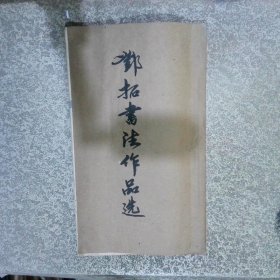 鄧拓書法作品选